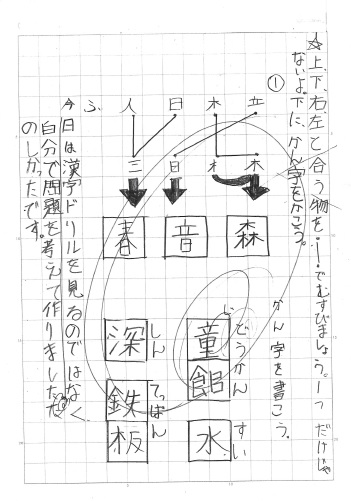 ☆上、下、右、左と合う物を・―・でむすびましょう。一つだけじゃ
ないよ。下に、かん字をかこう。
①
立 木 日 人 ふ
木 木 日 三
森 音 春
かん字を書こう。
どうわかん
童館
すい
水
しん
深
てっぱん
鉄板
今日は漢字ドリルを見るのではなく
自分で問題を考えて作りました。た
のしかったです。